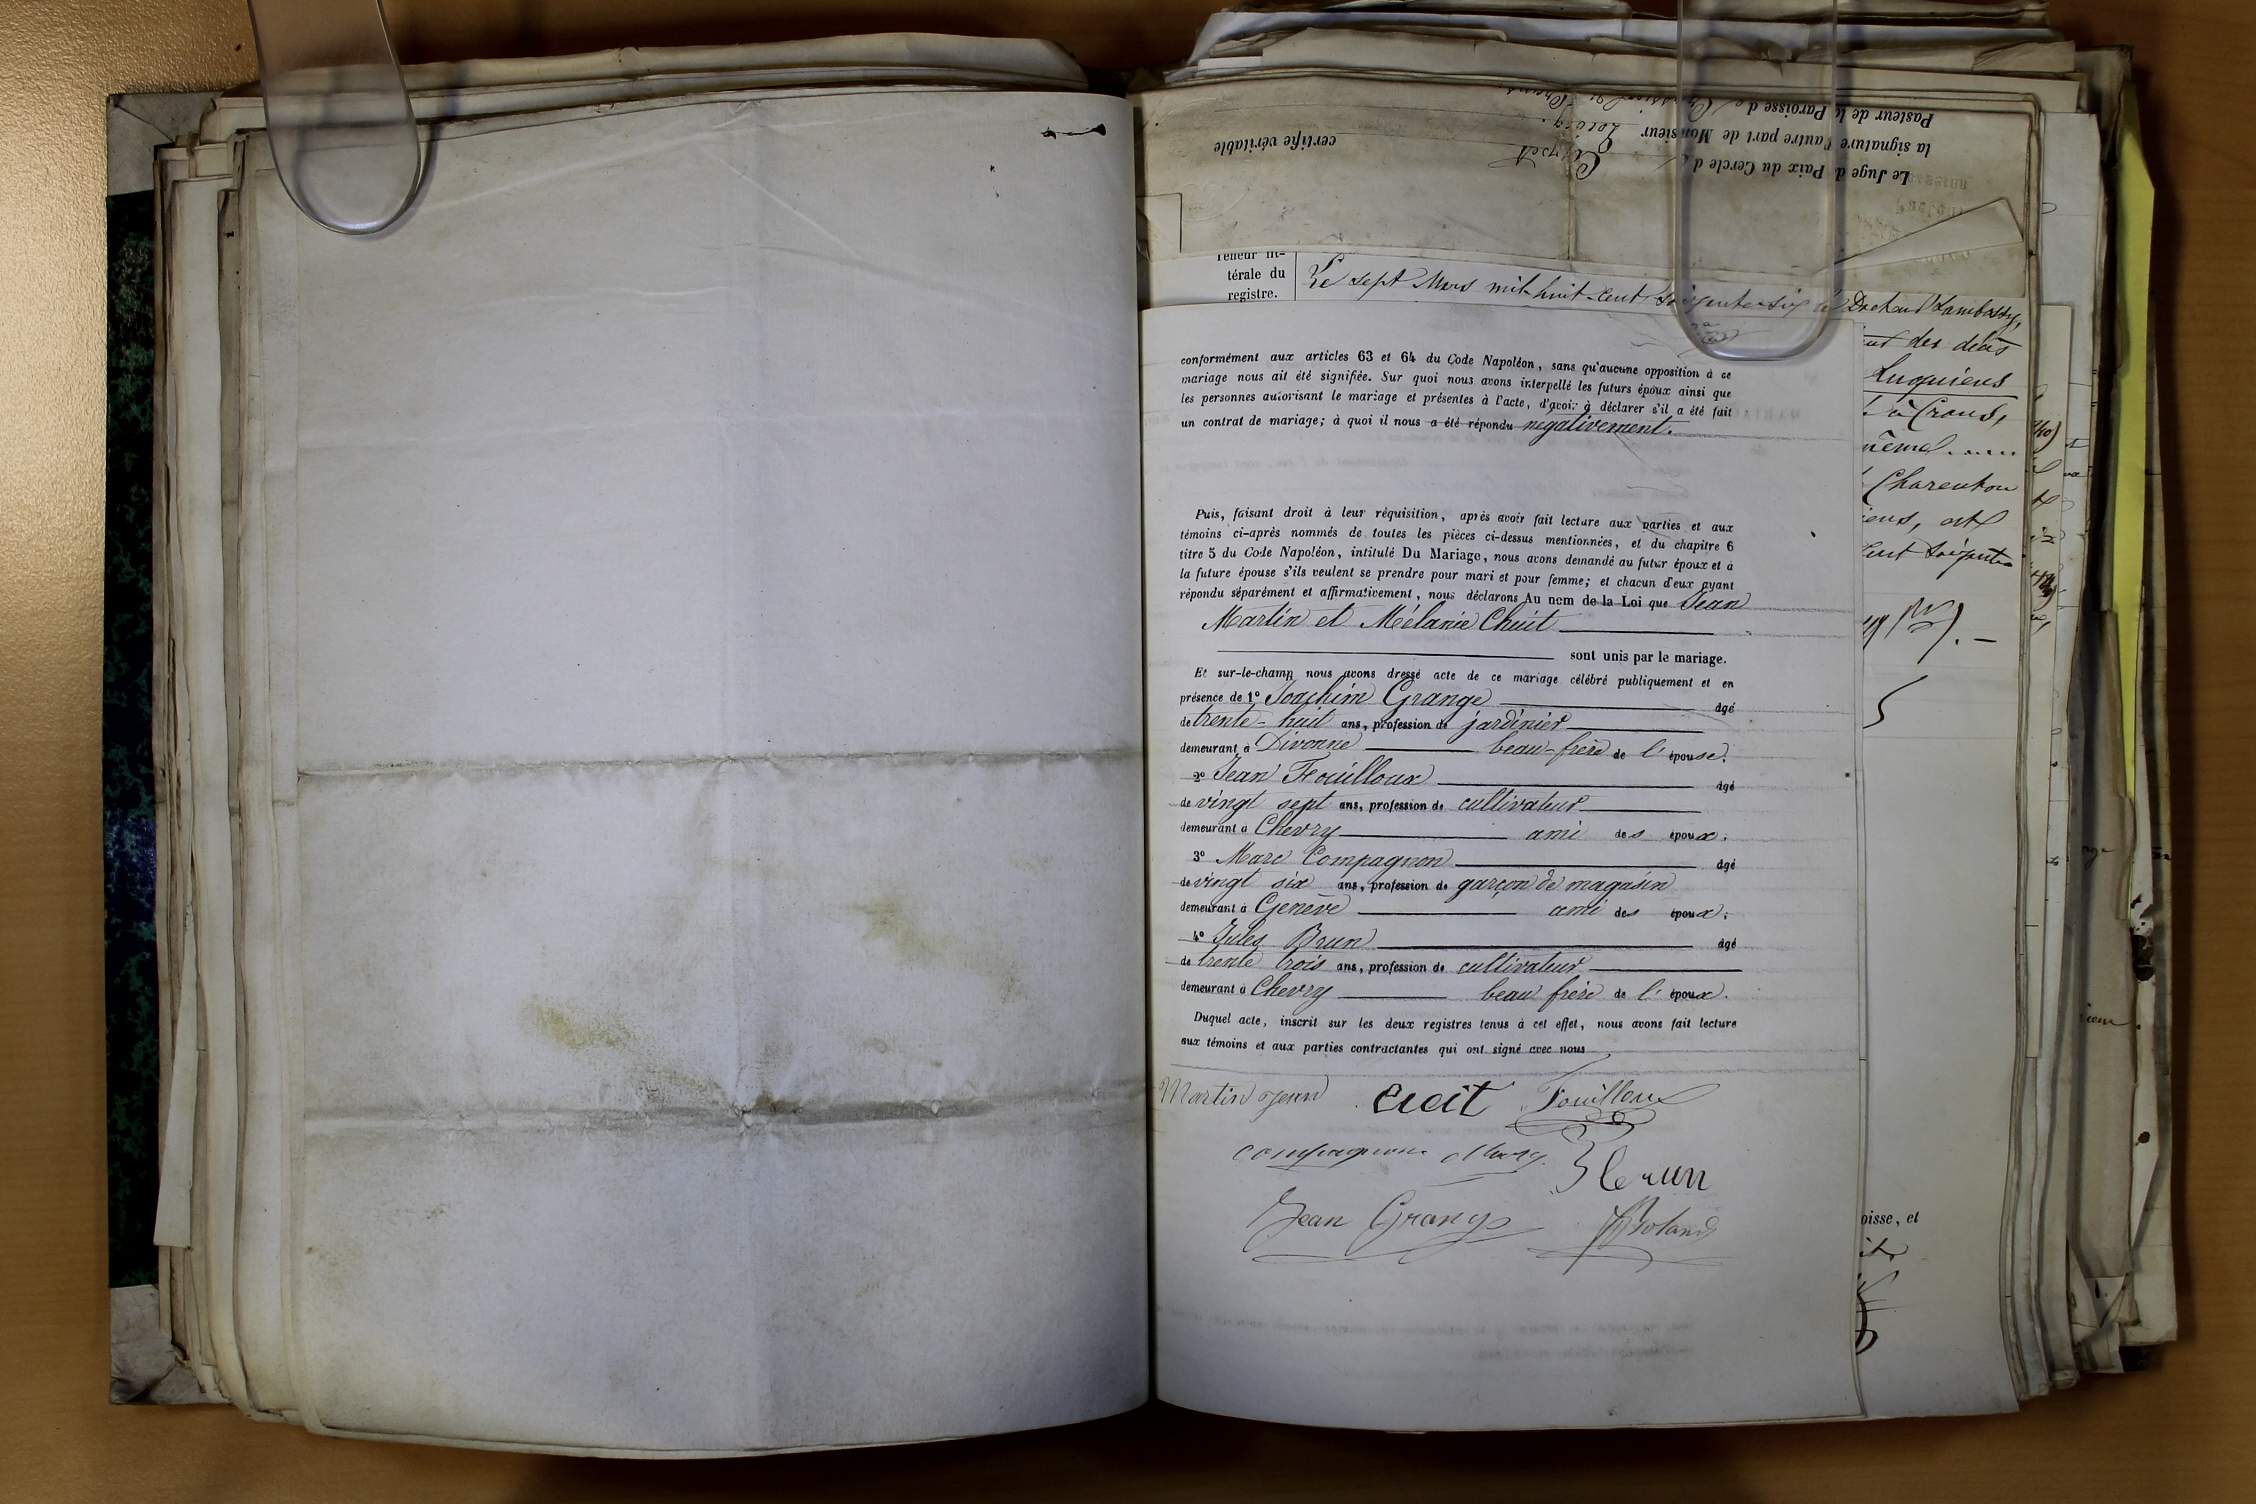 Pasteur de la Paroisse de
la signature d'autre part de Monsieur
Le Juge de Paix du Cercle de
certifie véritable
térale du
registre.
Le sept Mars mil-huit-cent soixante-six
des décès
Luquiens
à Crans,
Charenton
conformément aux articles 63 et 64 du Code Napoléon, sans qu'aucune opposition à ce
mariage nous ait été signifiée. Sur quoi nous avons interpellé les futurs époux ainsi que
les personnes autorisant le mariage et présentes à l'acte, d'avoir à déclarer s'il a été fait
un contrat de mariage; à quoi il nous a été répondu négativement.
Puis, faisant droit à leur réquisition, après avoir fait lecture aux parties et aux
témoins ci-après nommés de toutes les pièces ci-dessus mentionnées, et du chapitre 6
titre 5 du Code Napoléon, intitulé Du Mariage, nous avons demandé au futur époux et à
la future épouse s'ils veulent se prendre pour mari et pour femme; et chacun d'eux ayant
répondu séparément et affirmativement, nous déclarons Au nom de la Loi que Jean
Martin et Mélanie Chuit
sont unis par le mariage.
Et sur-le-champ nous avons dressé acte de ce mariage célébré publiquement et en
présence de 1º Joachim Grange âgé
de trente-huit ans, profession de jardinier
demeurant à Divonne beau-frère de l'épouse;
2º Jean Fouilloux âgé
de vingt sept ans, profession de cultivateur
demeurant à Chevry ami des époux;
3º Marc Compagnon âgé
de vingt six ans, profession de garçon de magasin
demeurant à Genève ami des époux;
4º Jules Brun âgé
de trente trois ans, profession de cultivateur
demeurant à Chevry beau frère de l'époux.
Duquel acte, inscrit sur les deux registres tenus à cet effet, nous avons fait lecture
aux témoins et aux parties contractantes qui ont signé avec nous
Martin Jean Fouilloux
compagnon Marc
Jean Grange
oisse, et